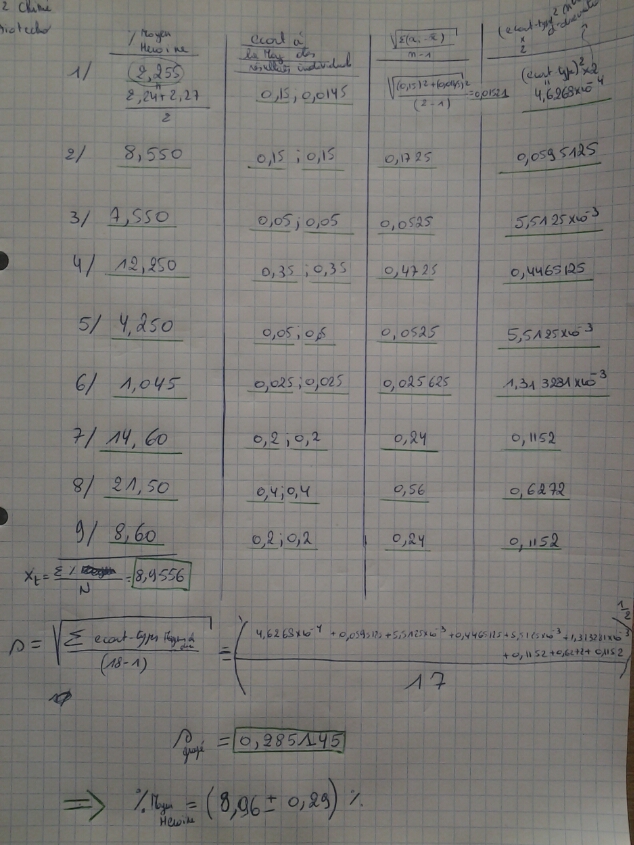 2 Chimie
Biotechno
% Moyen
Heroïne
écart à
la Moy des
résultats individuels
√ Σ(xᵢ - x̄)²
n-1
(écart-type)² x
1/ 2,255
2,24+2,27
2
0,15 ; 0,0145
√ (0,15)²+(0,0145)² = 0,01521
(2-1)
(écart type)² x 2
4,6268x10⁻⁴
2/ 8,550 0,15 ; 0,15 0,1725 0,0595125
3/ 7,550 0,05 ; 0,05 0,0525 5,5125x10⁻³
4/ 12,250 0,35 ; 0,35 0,4725 0,4465125
5/ 4,250 0,05 ; 0,5 0,0525 5,5125x10⁻³
6/ 1,045 0,025 ; 0,025 0,025625 1,313281x10⁻³
7/ 14,60 0,2 ; 0,2 0,24 0,1152
8/ 21,50 0,4 ; 0,4 0,56 0,6272
9/ 8,60 0,2 ; 0,2 0,24 0,1152
X̄t = Σ % = 8,9556
N
s = √ Σ écart-type = ( 4,6268x10⁻⁴ + 0,0595125 + 5,5125x10⁻³ + 0,4465125 + 5,5125x10⁻³ + 1,313281x10⁻³
+ 0,1152 + 0,6272 + 0,1152 )^1/2
(18-1)
17
s = 0,285145
⇒ % Moyen Heroïne = (8,96 ± 0,29) %